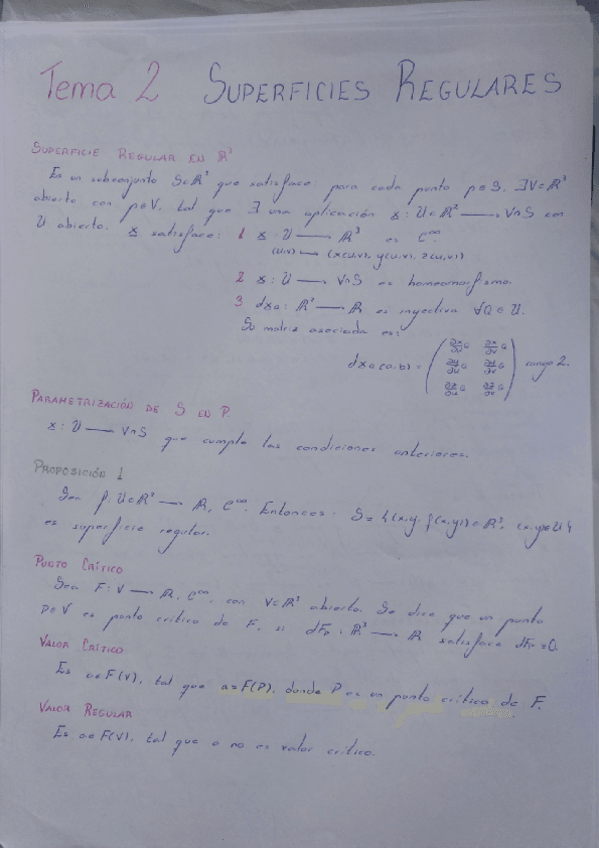 Tema 2 SUPERFICIES REGULARES
SUPERFICIE REGULAR EN ℝ³
Es un subconjunto S⊂ℝ³ que satisface: para cada punto p∈S, ∃V⊂ℝ³
abierto con p∈V, tal que ∃ una aplicación x: U⊂ℝ² ⟶ V∩S con
U abierto. x satisface: 1 x: U ⟶ ℝ³ es C∞.
(u,v) ⟶ (x(u,v), y(u,v), z(u,v))
2 x: U ⟶ V∩S es homeomorfismo.
3 dx_Q: ℝ² ⟶ ℝ es inyectiva ∀Q∈U.
Su matriz asociada es:
dx_Q(a,b) = (∂x/∂u Q ∂x/∂v Q
∂y/∂u Q ∂y/∂v Q
∂z/∂u Q ∂z/∂v Q) rango 2.
PARAMETRIZACIÓN DE S EN P.
x: U ⟶ V∩S que cumple las condiciones anteriores.
PROPOSICIÓN 1
Sea f: U⊂ℝ² ⟶ ℝ, C∞. Entonces: S={(x,y,f(x,y))∈ℝ³, (x,y)∈U}
es superficie regular.
PUNTO CRÍTICO
Sea F: V ⟶ ℝ, C∞, con V⊂ℝ³ abierto. Se dice que un punto
p∈V es punto crítico de F, si dF_p: ℝ³ ⟶ ℝ satisface dF_p=0
VALOR CRÍTICO
Es a∈F(V), tal que a=F(P), donde P es un punto crítico de F.
VALOR REGULAR
Es a∈F(V), tal que a no es valor crítico.